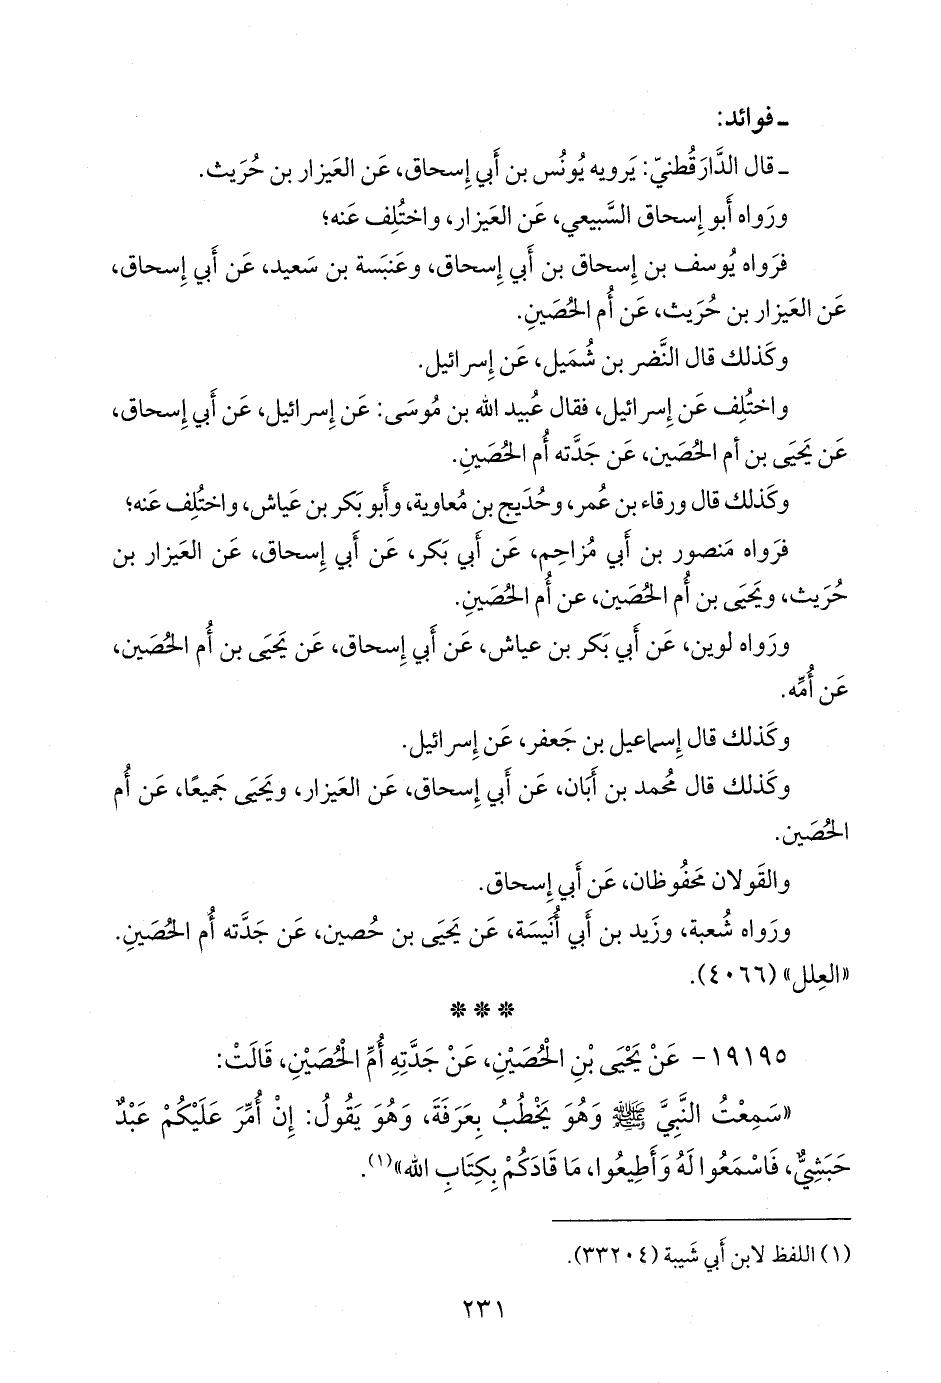 ـ فوائد:
ـ قال الدَّارَقُطنيّ: يَرويه يُونُس بن أَبي إِسحاق، عَن العَيزار بن حُرَيث.
ورَواه أَبو إِسحاق السَّبيعي، عَن العَيزار، واختُلِف عَنه؛
فرَواه يُوسف بن إِسحاق بن أَبي إِسحاق، وعَنبَسة بن سَعيد، عَن أَبي إِسحاق،
عَن العَيزار بن حُرَيث، عَن أُم الحُصَينِ.
وكَذلك قال النَّضر بن شُمَيل، عَن إِسرائيل.
واختُلِف عَن إِسرائيل، فقال عُبيد الله بن مُوسَى: عَن إِسرائيل، عَن أَبي إِسحاق،
عَن يَحيَى بن أم الحُصَين، عَن جَدَّته أُم الحُصَينِ.
وكَذلك قال ورقاء بن عُمر، وحُدَيج بن مُعاوية، وأَبو بَكر بن عَياش، واختُلِف عَنه؛
فرَواه مَنصور بن أَبي مُزاحِم، عَن أَبي بَكر، عَن أَبي إِسحاق، عَن العَيزار بن
حُرَيث، ويَحيَى بن أُم الحُصَين، عن أُم الحُصَينِ.
ورَواه لوين، عَن أَبي بَكر بن عياش، عَن أَبي إِسحاق، عَن يَحيَى بن أُم الحُصَين،
عَن أُمِّه.
وكَذلك قال إِسماعيل بن جَعفر، عَن إِسرائيل.
وكَذلك قال مُحمد بن أَبَان، عَن أَبي إِسحاق، عَن العَيزار، ويَحيَى جَميعًا، عَن أُم
الحُصَين.
والقَولان مَحفُوظان، عَن أَبي إِسحاق.
ورَواه شُعبة، وزَيد بن أَبي أُنَيسَة، عَن يَحيَى بن حُصين، عَن جَدَّته أُم الحُصَينِ.
«العِلل» (٤٠٦٦).
***
١٩١٩٥- عَنْ يَحْيَى بْنِ الْحُصَيْنِ، عَنْ جَدَّتِهِ أُمِّ الْحُصَيْنِ، قَالَتْ:
«سَمِعْتُ النَّبِيَّ ﷺ وَهُوَ يَخْطُبُ بِعَرَفَةَ، وَهُوَ يَقُولُ: إِنْ أُمِّرَ عَلَيْكُمْ عَبْدٌ
حَبَشِيٌّ، فَاسْمَعُوا لَهُ وَأَطِيعُوا، مَا قَادَكُمْ بِكِتَابِ الله»(١).
(١) اللفظ لابن أَبي شَيبة (٣٣٢٠٤).
٢٣١